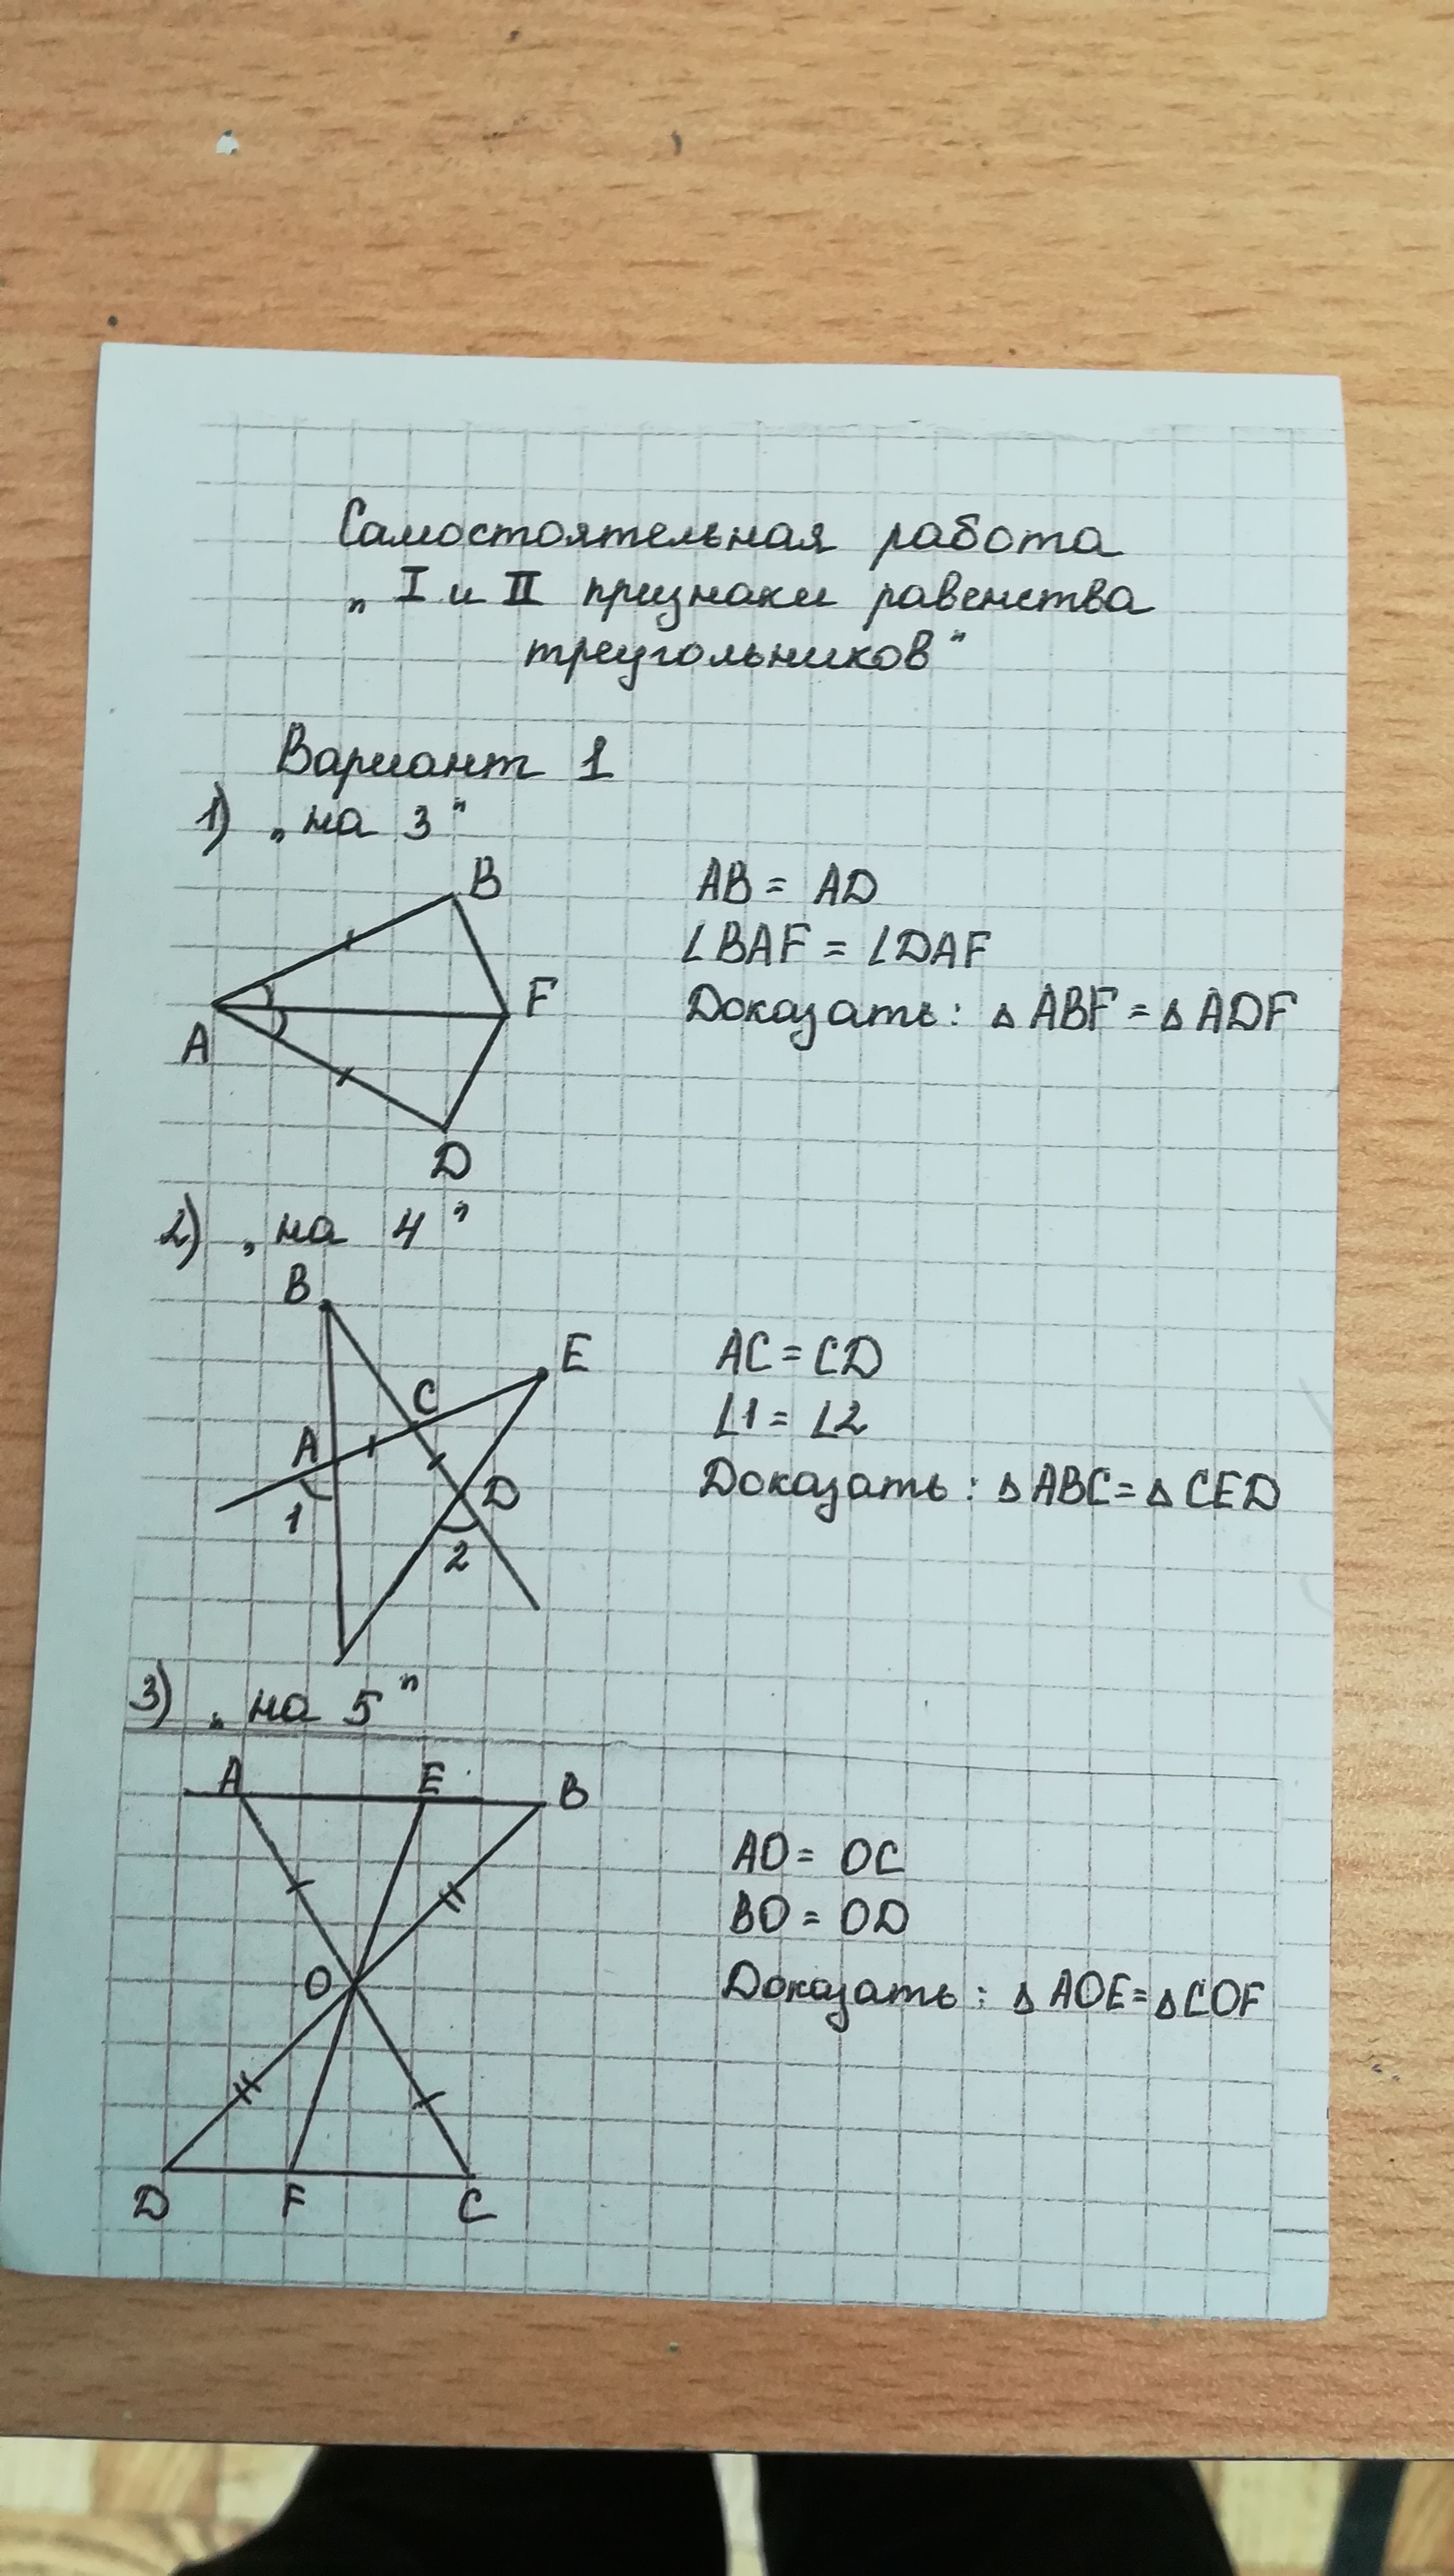 Самостоятельная работа
„ I и II признаки равенства
треугольников"
Вариант 1
1) „ на 3 "
B
F
A
D
AB = AD
∠BAF = ∠DAF
Доказать: △ ABF = △ ADF
2) „ на 4 "
B
E
C
A
D
1
2
AC = CD
∠1 = ∠2
Доказать: △ ABC = △ CED
3) „ на 5 "
A E B
O
D F C
AO = OC
BO = OD
Доказать: △ AOE = △ COF